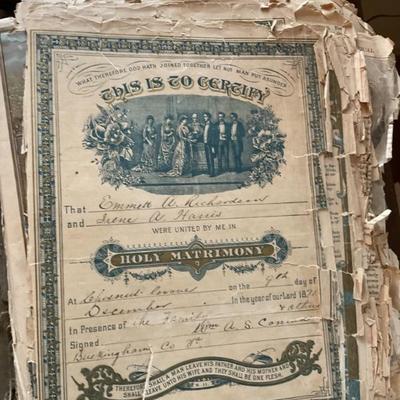 WHAT THEREFORE GOD HATH JOINED TOGETHER LET NOT MAN PUT ASUNDER
THIS IS TO CERTIFY
That Emmett A. Richardson
and Irene A. Harris
WERE UNITED BY ME IN
HOLY MATRIMONY
At on the 9th day of
December in the year of our Lord 187
In Presence of the Family & others
Signed Wm A. S.
Buckingham Co Va.
THEREFORE SHALL A MAN LEAVE HIS FATHER AND HIS MOTHER AND
SHALL LEAVE UNTO HIS WIFE AND THEY SHALL BE ONE FLESH.